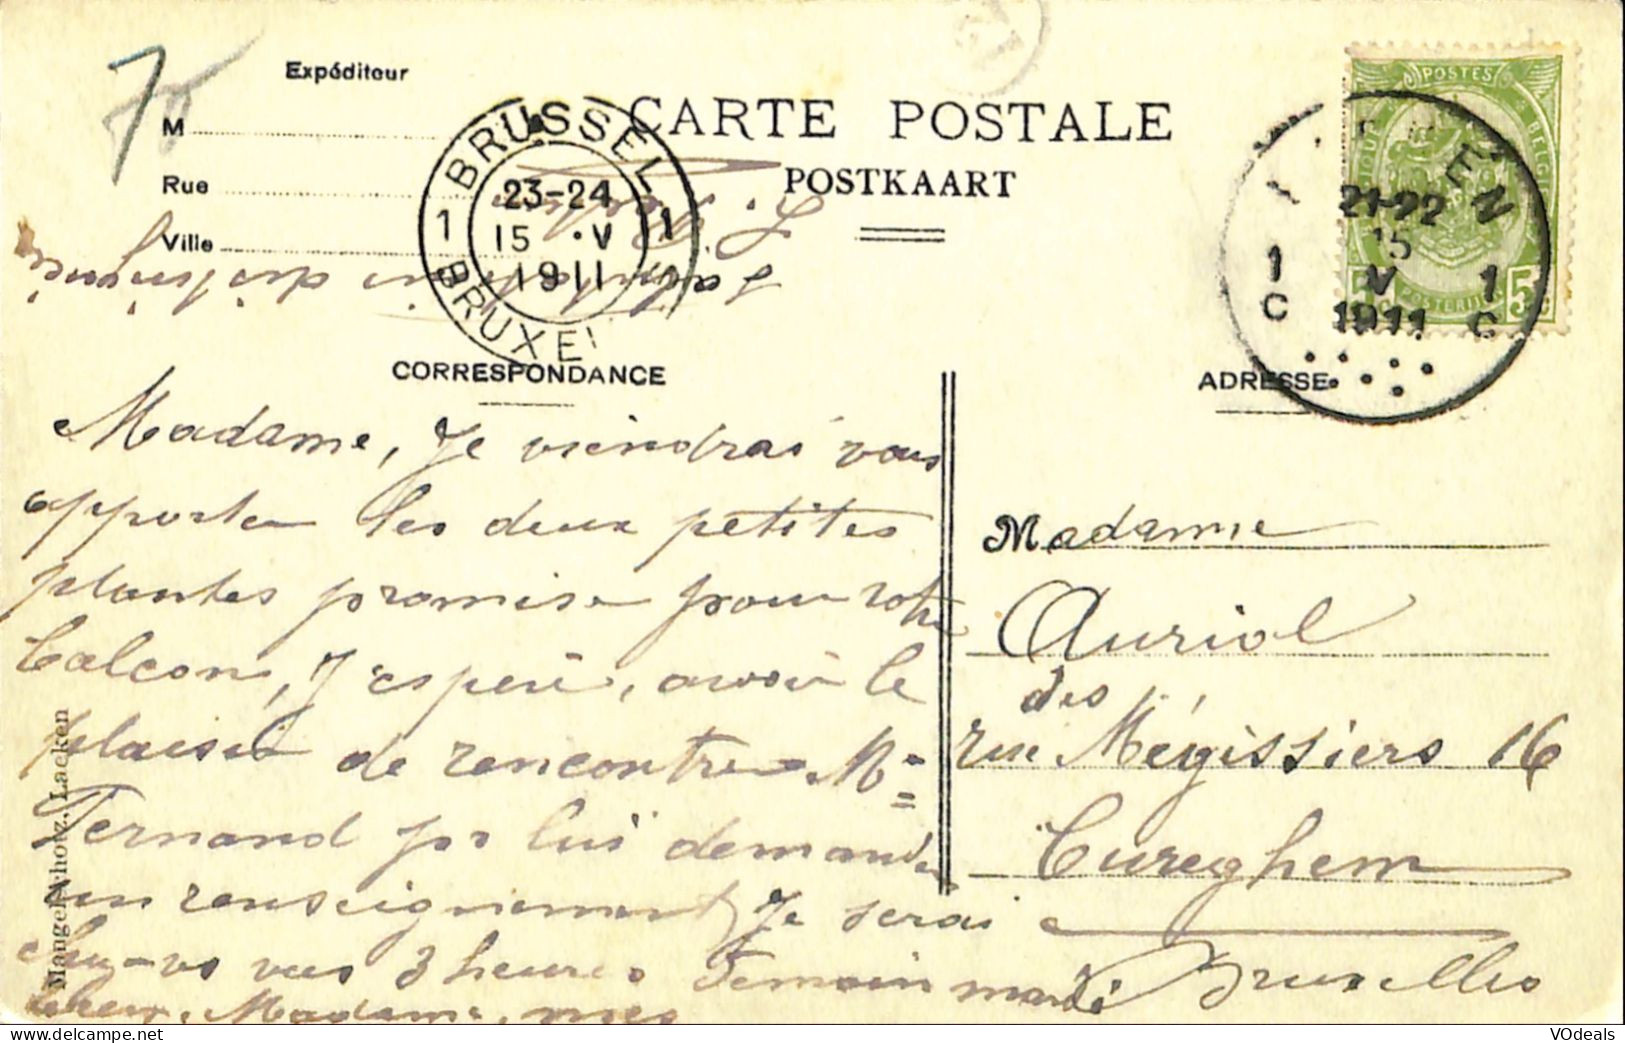 70
Expéditeur
M
Rue
Ville
CARTE POSTALE
POSTKAART
BRUSSEL
1 23-24 1
15 V
1911
BRUXE
POSTES
BELGIE
21-22
15
1 V 1
C 1911 C
5
salutations distinguées
CORRESPONDANCE
ADRESSE
Madame, Je viendrai vous
apporter les deux petites
plantes promises pour votre
balcon, J'espère, avoir le
plaisir de rencontrer Mr
Fernand pr lui demander
un renseignement Je serai
chez-vs vers 3 heures Demain mardi
Madame, mes
Madame
Auriol
des
rue Mégissiers 16
Cureghem
Bruxelles
Mangelschotz, Laeken
VOdeals